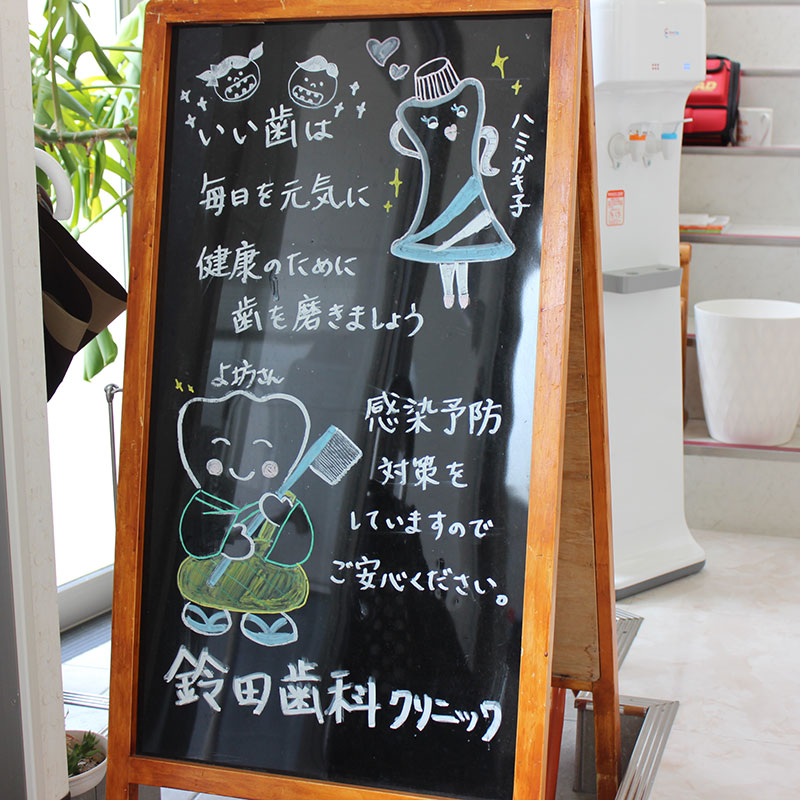 いい歯は
毎日を元気に
健康のために
歯を磨きましょう
ハミガキ子
よ坊さん
感染予防
対策を
していますので
ご安心ください。
鈴田歯科クリニック